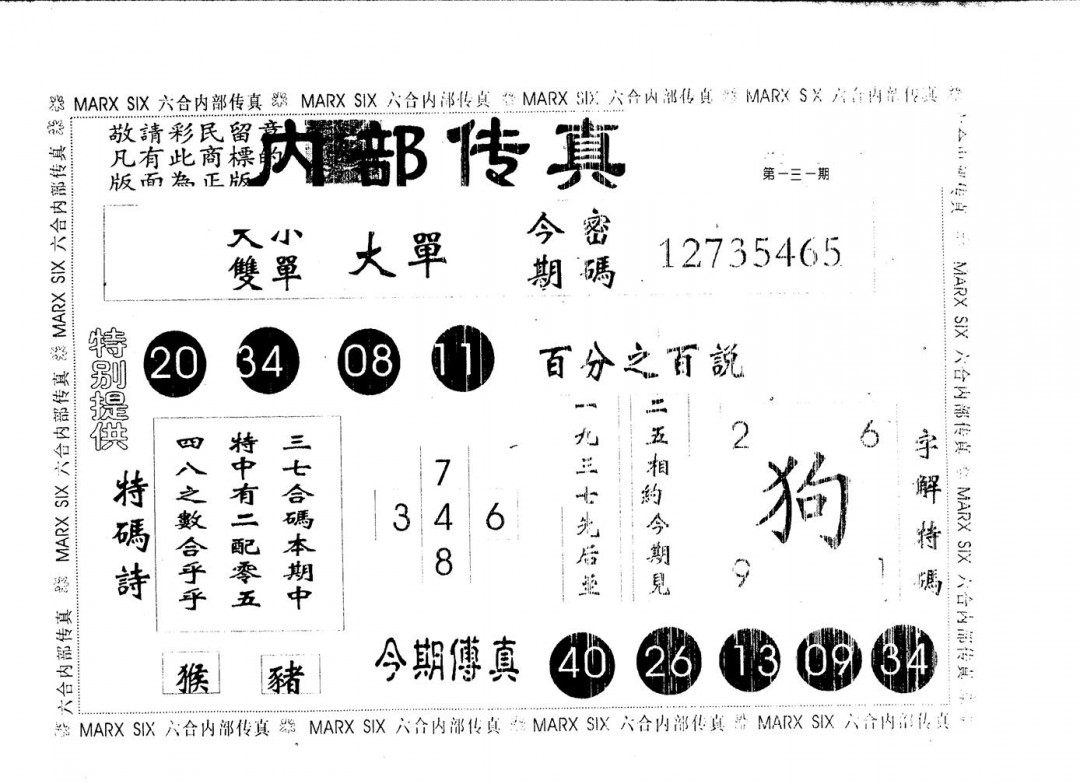 MARX SIX 六合内部传真 MARX SIX 六合内部传真 MARX SIX 六合内部传真 MARX SIX 六合内部传真
敬請彩民留意
凡有此商標的
版面為正版
内部传真
第一三一期
大小
雙單
大單
今期
密碼
12735465
特别提供
20 34 08 11
百分之百説
特碼詩
三七合碼本期中
特中有二配零五
四八之數合乎乎
猴 豬
7
3 4 6
8
二五相約今期見
一九三七先后並
2 6
狗
9 1
字解特碼
今期傳真
40 26 13 09 34
MARX SIX 六合内部传真 MARX SIX 六合内部传真
MARX SIX 六合内部传真 MARX SIX 六合内部传真
MARX SIX 六合内部传真 MARX SIX 六合内部传真 MARX SIX 六合内部传真 MARX SIX 六合内部传真